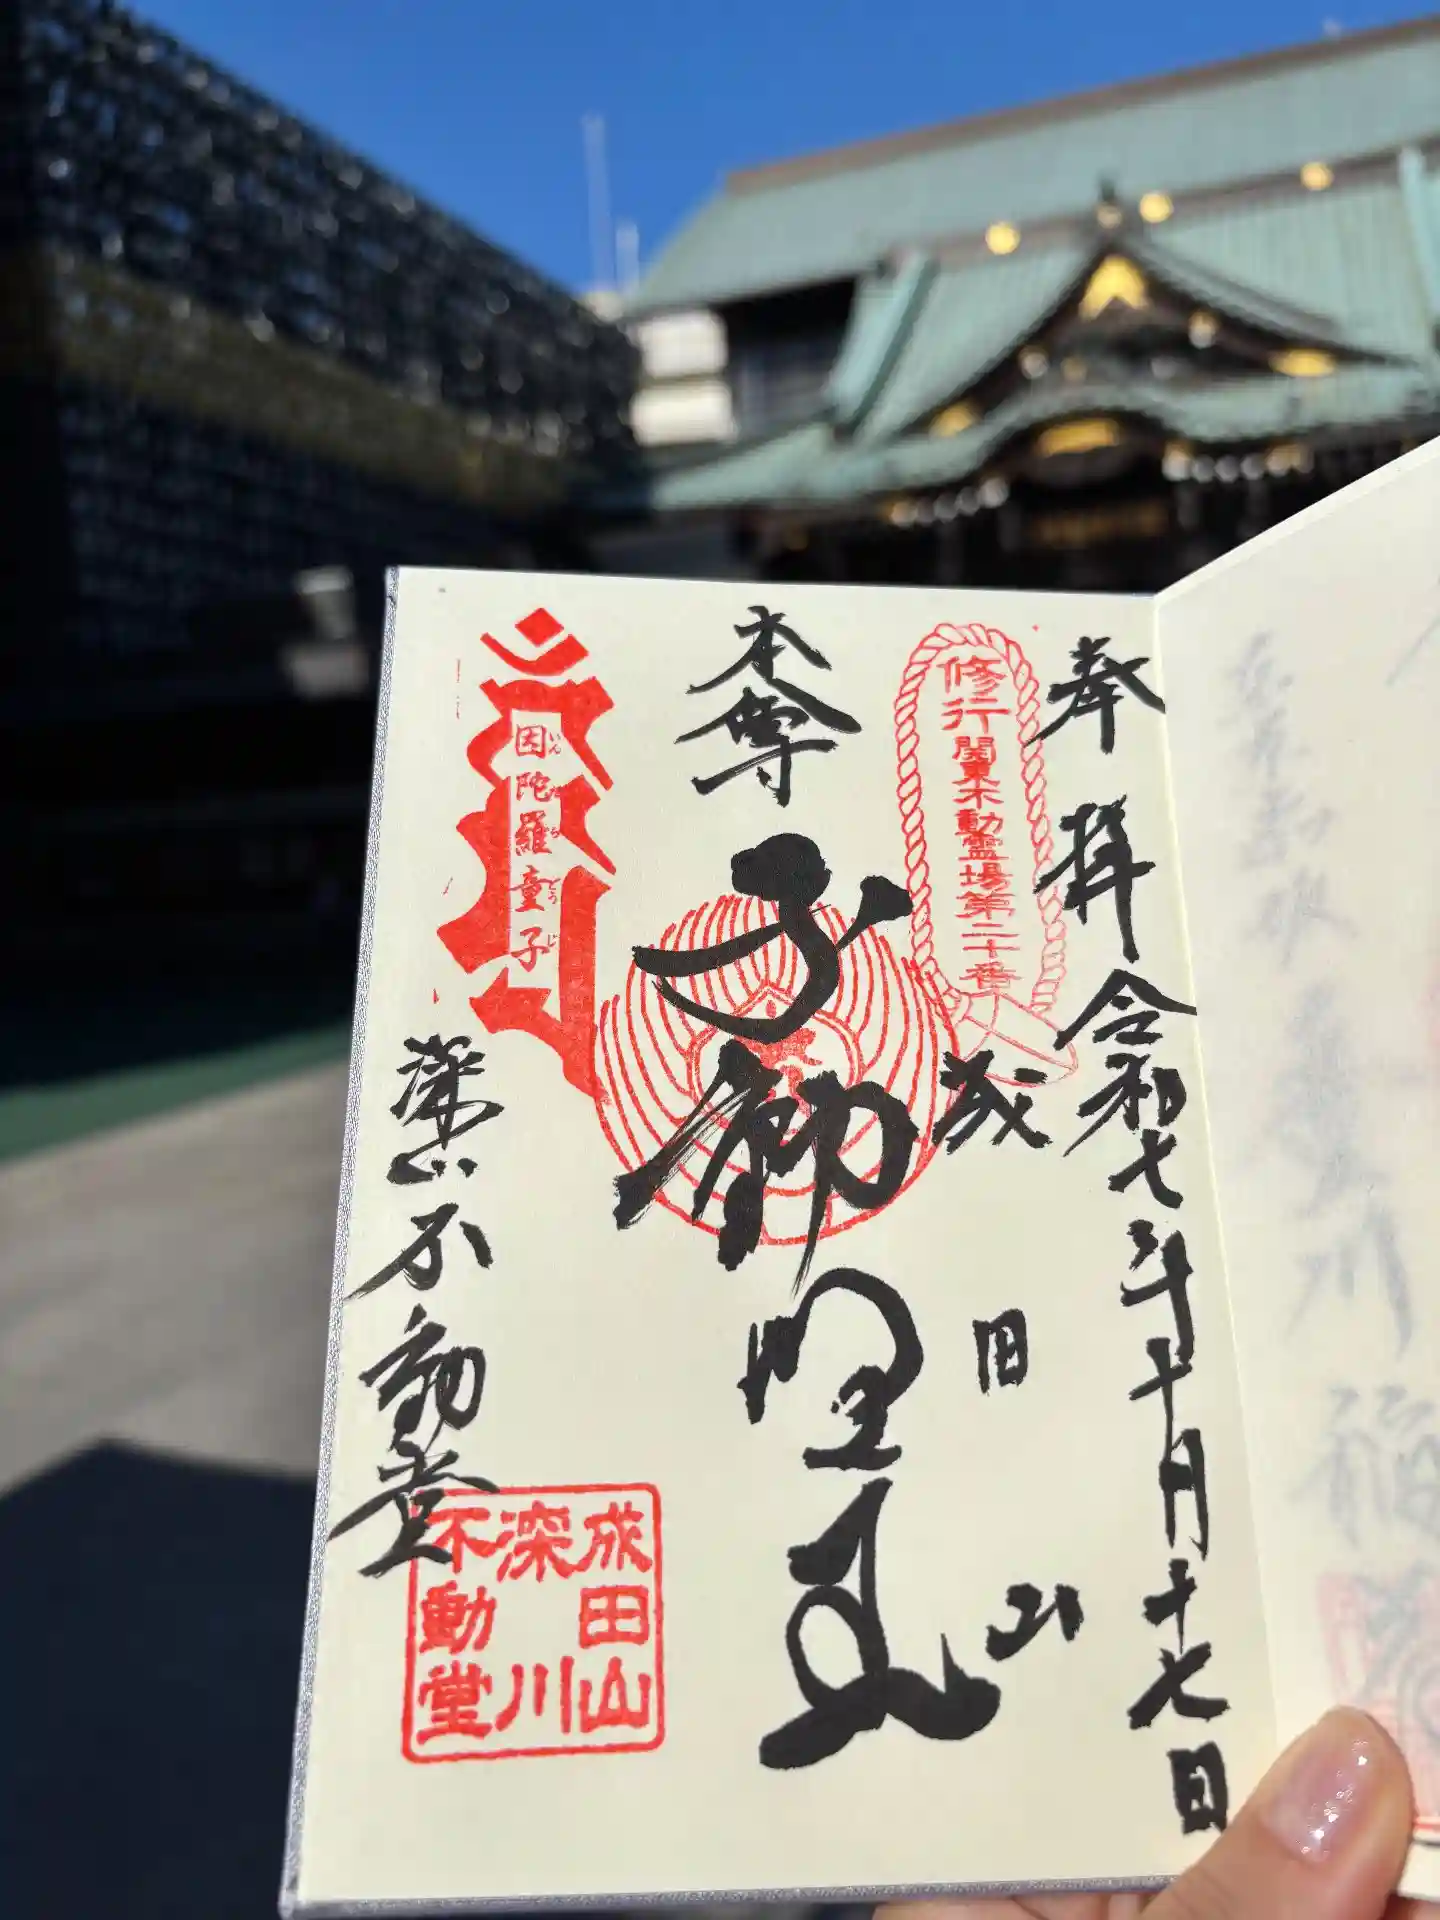 奉拝
令和七年十月十七日
修行関東不動霊場第二十番
成田山
本尊
不動明王
因陀羅童子
いんだらどうじ
深川不動堂
成田山
深川
不動堂